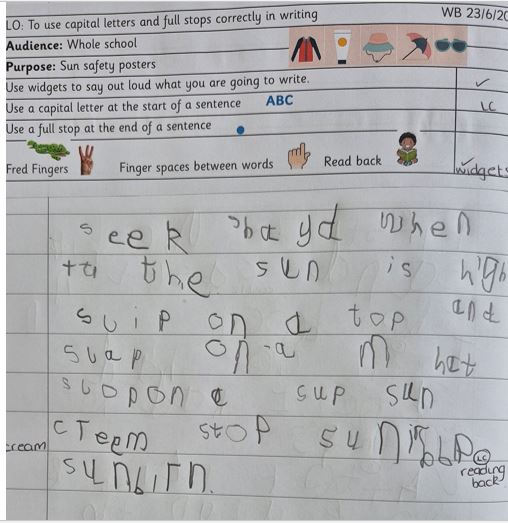 LO: To use capital letters and full stops correctly in writing WB 23/6/20
Audience: Whole school
Purpose: Sun safety posters
Use widgets to say out loud what you are going to write. ✓
Use a capital letter at the start of a sentence ABC LC
Use a full stop at the end of a sentence
Fred Fingers Finger spaces between words Read back widgets
seek shayd when
the sun is high
suip on a top and
suap on a hat
suopon a sup sun
cream cTeem stop
sunbirn. LC reading back